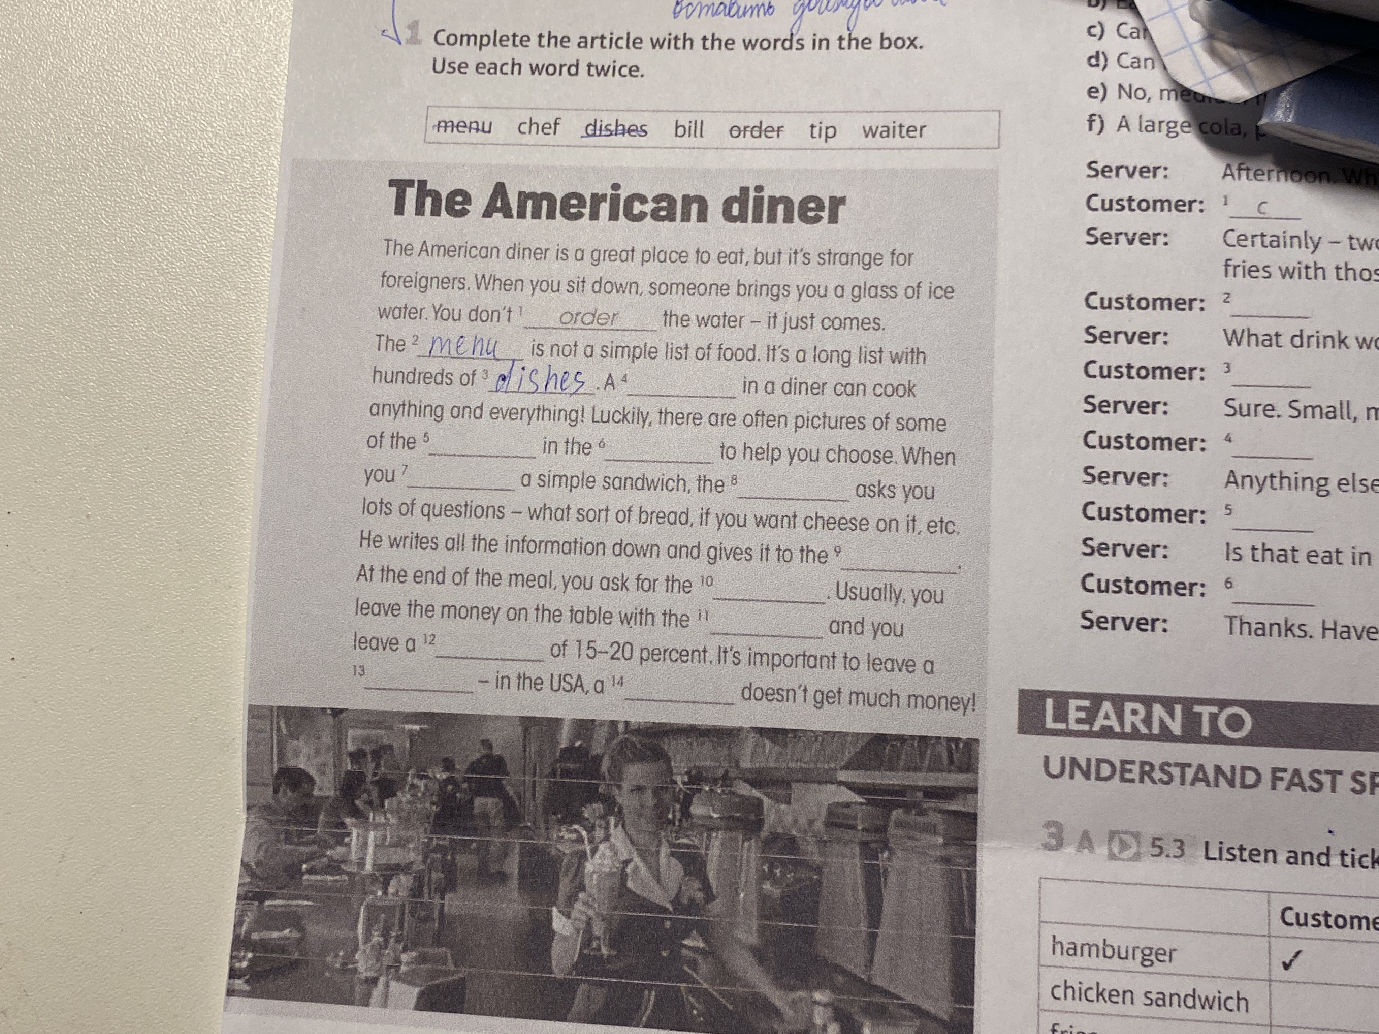 1 Complete the article with the words in the box.
Use each word twice.
menu chef dishes bill order tip waiter
The American diner
The American diner is a great place to eat, but it's strange for
foreigners. When you sit down, someone brings you a glass of ice
water. You don't 1 order the water – it just comes.
The 2 menu is not a simple list of food. It's a long list with
hundreds of 3 dishes. A 4 ________ in a diner can cook
anything and everything! Luckily, there are often pictures of some
of the 5 ________ in the 6 ________ to help you choose. When
you 7 ________ a simple sandwich, the 8 ________ asks you
lots of questions – what sort of bread, if you want cheese on it, etc.
He writes all the information down and gives it to the 9 ________.
At the end of the meal, you ask for the 10 ________. Usually, you
leave the money on the table with the 11 ________ and you
leave a 12 ________ of 15–20 percent. It's important to leave a
13 ________ – in the USA, a 14 ________ doesn't get much money!
c) Car
d) Can
e) No,
f) A large cola,
Server: Afternoon. Wh
Customer: 1 c
Server: Certainly – two
fries with thos
Customer: 2 ________
Server: What drink wo
Customer: 3 ________
Server: Sure. Small, m
Customer: 4 ________
Server: Anything else
Customer: 5 ________
Server: Is that eat in
Customer: 6 ________
Server: Thanks. Have
LEARN TO
UNDERSTAND FAST SP
3 A 5.3 Listen and tick
Custome
hamburger ✓
chicken sandwich